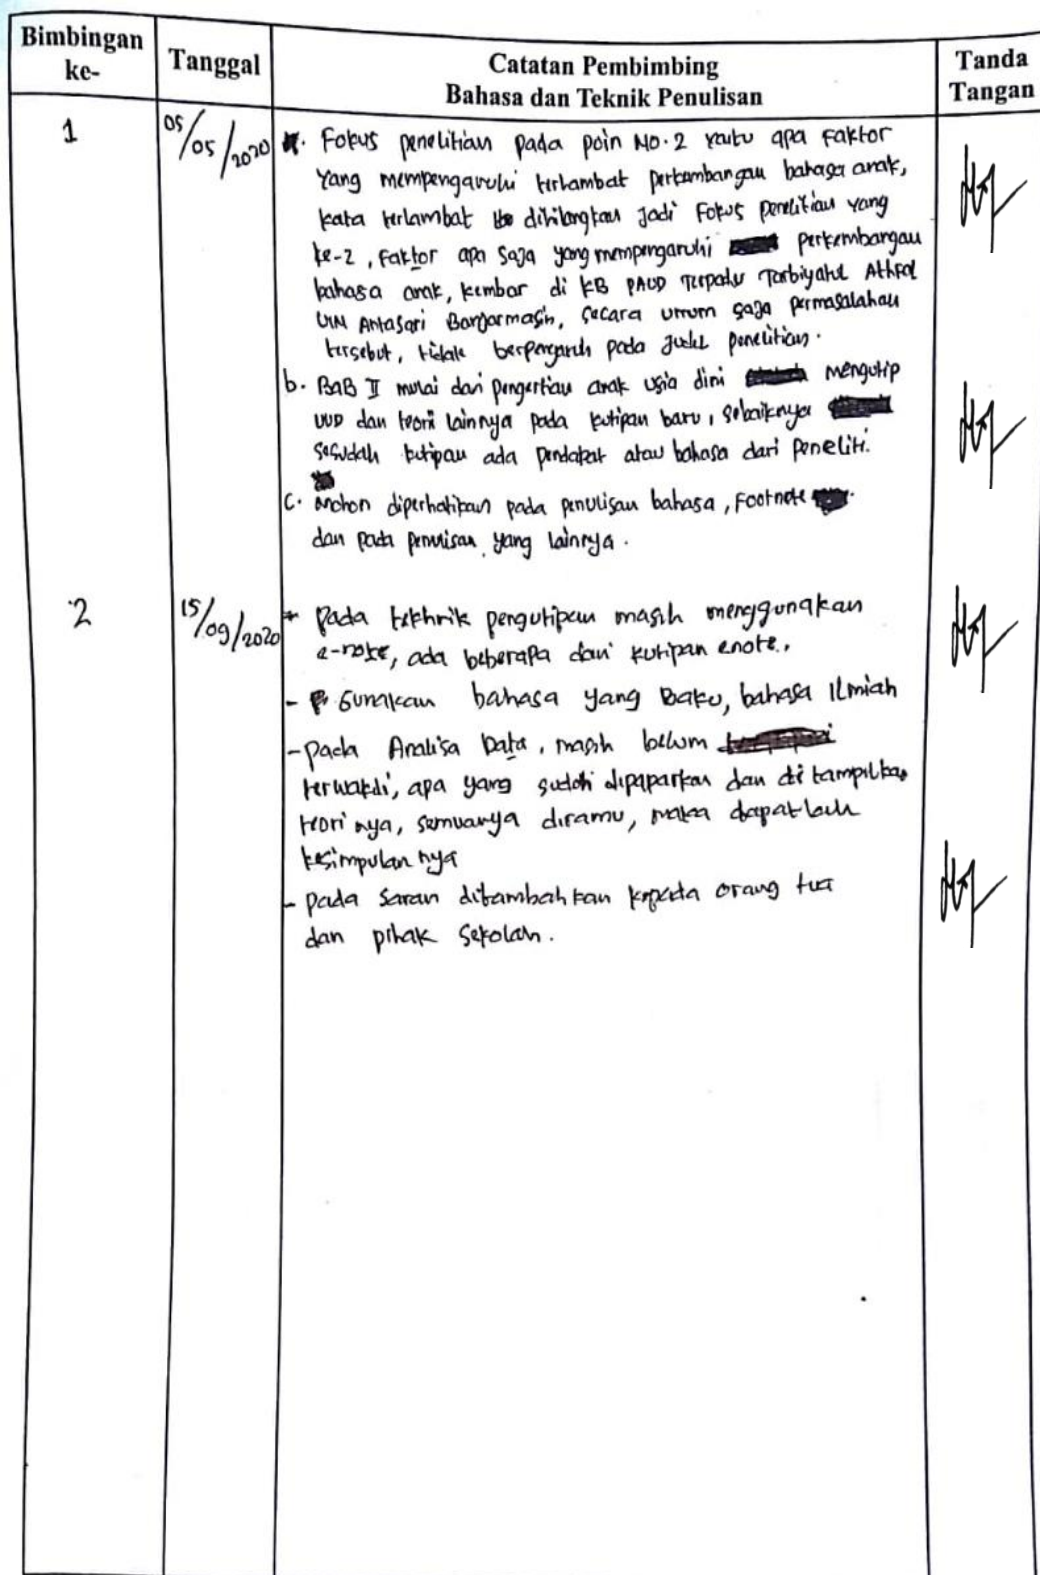 Bimbingan ke-
Tanggal
Catatan Pembimbing
Bahasa dan Teknik Penulisan
Tanda Tangan
1
05/05/2020
Fokus penelitian pada poin No.2 yaitu apa faktor
yang mempengaruhi terlambat perkembangan bahasa anak,
kata terlambat dihilangkan jadi Fokus penelitian yang
ke-2, faktor apa saja yang mempengaruhi perkembangan
bahasa anak, kembar di KB PAUD Terpadu Tarbiyatul Athfal
UIN Antasari Banjarmasin, secara umum saja permasalahan
tersebut, tidak berpengaruh pada judul penelitian.
b. BAB II mulai dari pengertian anak usia dini mengutip
UUD dan teori lainnya pada kutipan baru, sebaiknya
sesudah kutipan ada pendapat atau bahasa dari peneliti.
c. mohon diperhatikan pada penulisan bahasa, Footnote
dan pada penulisan yang lainnya.
2
15/09/2020
pada tekhnik pengutipan masih menggunakan
e-note, ada beberapa dari kutipan enote.,
- Gunakan bahasa yang Baku, bahasa Ilmiah
- pada Analisa Data, masih belum
terwakdi, apa yang sudah dipaparkan dan di tampilkan
teori nya, semuanya diramu, maka dapatlah
kesimpulan nya
- pada saran ditambahkan kepada orang tua
dan pihak sekolah.